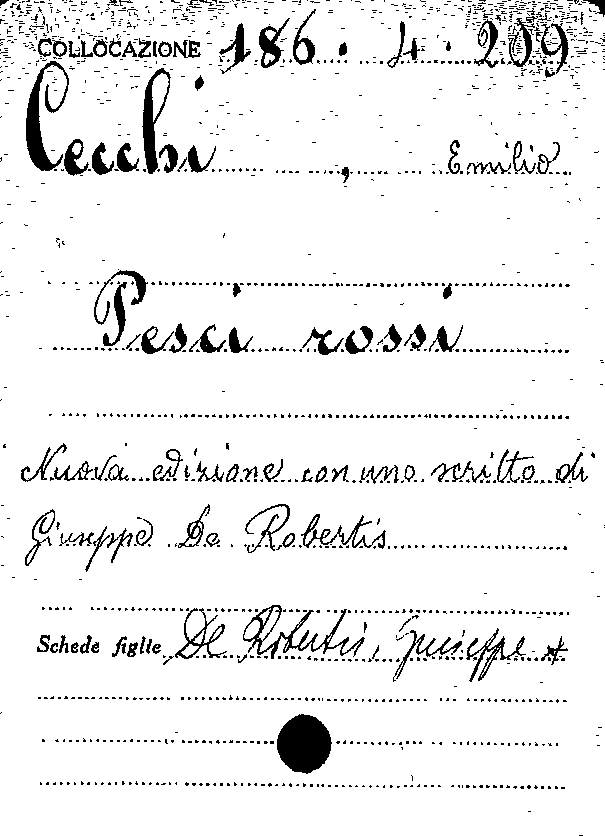 COLLOCAZIONE 186. 4. 209
Cecchi, Emilio
Pesci rossi
Nuova edizione con uno scritto di
Giuseppe De Robertis
Schede figlie De Robertis, Giuseppe *